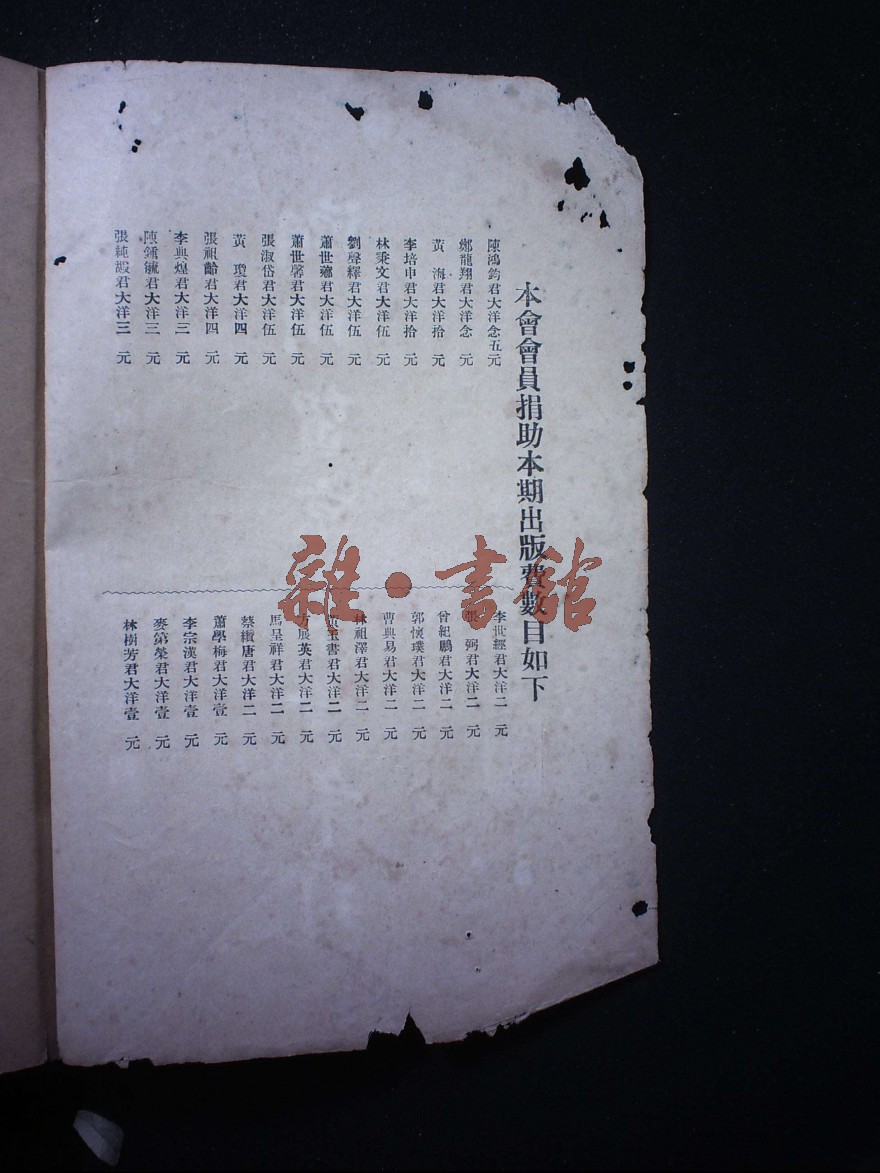 本會會員捐助本期出版費數目如下
陳鴻鈞君大洋念五元
鄭龍翔君大洋念 元
黃 海君大洋拾 元
李培申君大洋拾 元
林秉文君大洋伍 元
劉聲繹君大洋伍 元
蕭世 君大洋伍 元
蕭世馨君大洋伍 元
張淑岱君大洋伍 元
黃 瓊君大洋四 元
張祖齡君大洋四 元
李典煌君大洋三 元
陳鏞毓君大洋三 元
張純嘏君大洋三 元
李世經君大洋二 元
張 弼君大洋二 元
曾紀鵬君大洋二 元
郭懷璞君大洋二 元
曹典易君大洋二 元
林祖澤君大洋二 元
黃玉書君大洋二 元
方展英君大洋二 元
馬呈祥君大洋二 元
蔡繼唐君大洋二 元
蕭學梅君大洋壹 元
李宗漢君大洋壹 元
麥第榮君大洋壹 元
林樹芳君大洋壹 元
雜·書館